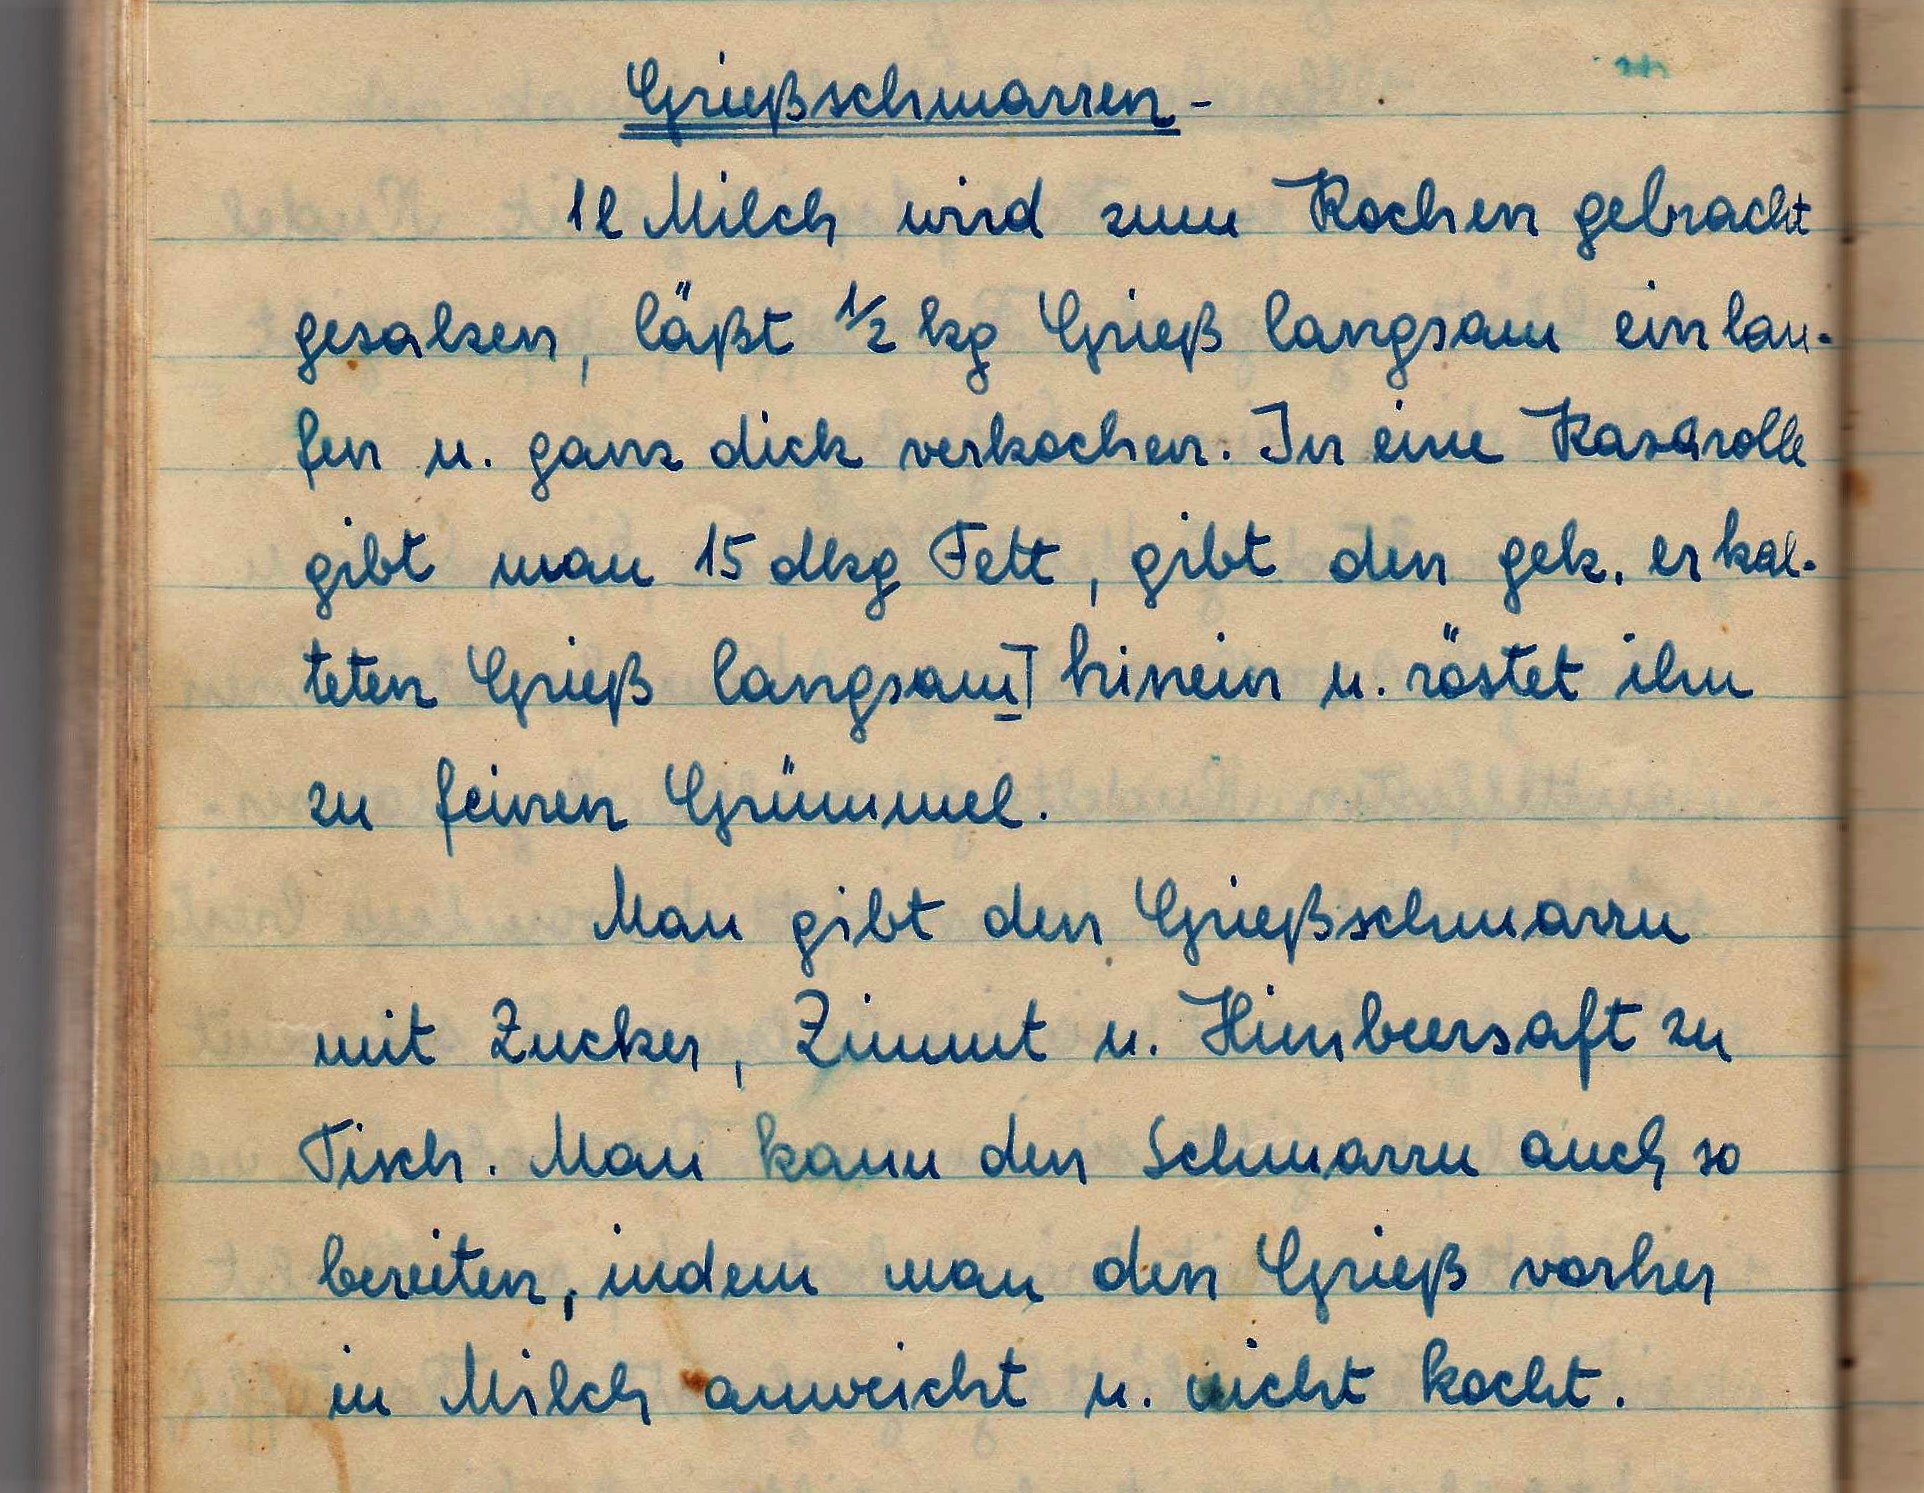 Grießschmarren -
1l Milch wird zum Kochen gebracht
gesalzen, läßt 1/2 kg Grieß langsam einlau-
fen u. ganz dick verkochen. In eine Kasarolle
gibt man 15 dkg Fett, gibt den gek. erkal-
teten Grieß langsam hinein u. röstet ihn
zu feinen Grümmel.
Man gibt den Grießschmarrn
mit Zucker, Zimmt u. Himbeersaft zu
Tisch. Man kann den Schmarrn auch so
bereiten, indem man den Grieß vorher
in Milch anweicht u. nicht kocht.